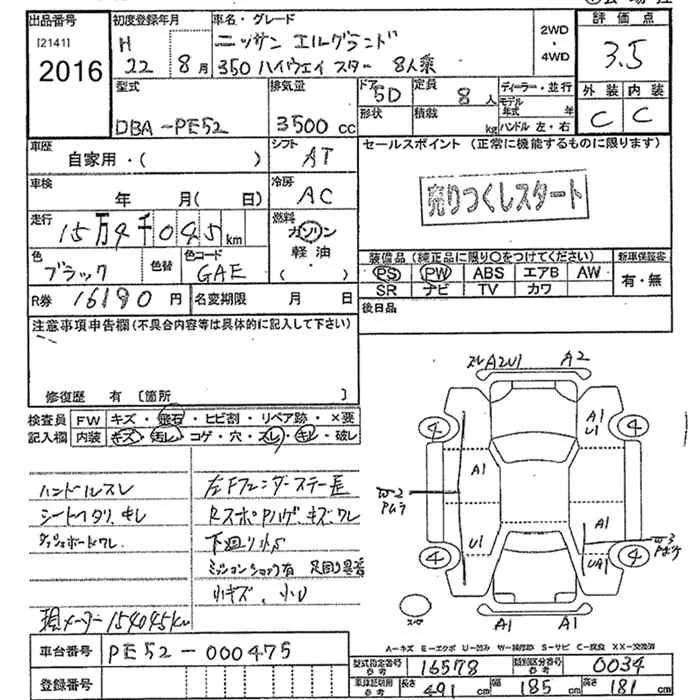 出品番号 初度登録年月 車名・グレード 評価点
[2141] H 22 8月 ニッサン エルグランド 2WD・4WD 3.5
2016 350 ハイウェイスター 8人乗
型式 排気量 ドア 5D 定員 8人 ディーラー・並行 外装 内装
DBA-PE52 3500cc 形状 積載 kg モデル年式 年 ハンドル 左・右 C C
車歴 自家用・( ) シフト AT セールスポイント (正常に機能するものに限ります)
車検 年 月( 日) 冷房 AC 売りつくしスタート
走行 15万4千045km 燃料 ガソリン 軽油 ( )
装備品 (純正品に限り○をつけてください) 新車保証書
色 ブラック 色替 色コード GAE PS PW ABS エアB AW 有・無
SR ナビ TV カワ
R券 16180円 名変期限 月 日 後日品
注意事項申告欄(不具合内容等は具体的に記入して下さい)
修復歴 有 [箇所 ]
検査員 FW キズ・飛石・ヒビ割・リペア跡・×要
記入欄 内装 キズ・汚レ・コゲ・穴・スレ・キレ・破レ
ハンドルスレ 左Fフェンダーステー
シートヘタリ、キレ Rスポ Pハゲ、キズ、ワレ
ダッシュボードワレ 下廻り小S
ミッションショック有 足回り異音
小キズ、小U
現メーター 154045km
スレ A2U1 A2
④ A1 U1 ④
A1
W2
A1 W3
④ U1 UA1 ④
スペア A1 A1
A-キズ E-エクボ U-凹み W-補修跡 S-サビ C-腐食 XX-交換済
車台番号 PE52-000475 型式指定番号 参考 16578 類別区分番号 参考 0034
登録番号 車庫証明用 参考 長さ 491cm 幅 185cm 高さ 181cm